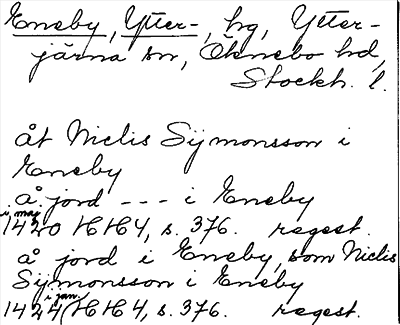 Eneby, Ytter-, hg, Ytter-
järna sn, Öknebo hd,
Stockh. l.
åt Niclis Sijmonsson i
Eneby
å jord --- i Eneby
i maj
1420 HH4, s. 376. regest.
å jord i Eneby, som Niclis
Sijmonsson i Eneby
i jan.
1424 (HH4, s. 376. regest.